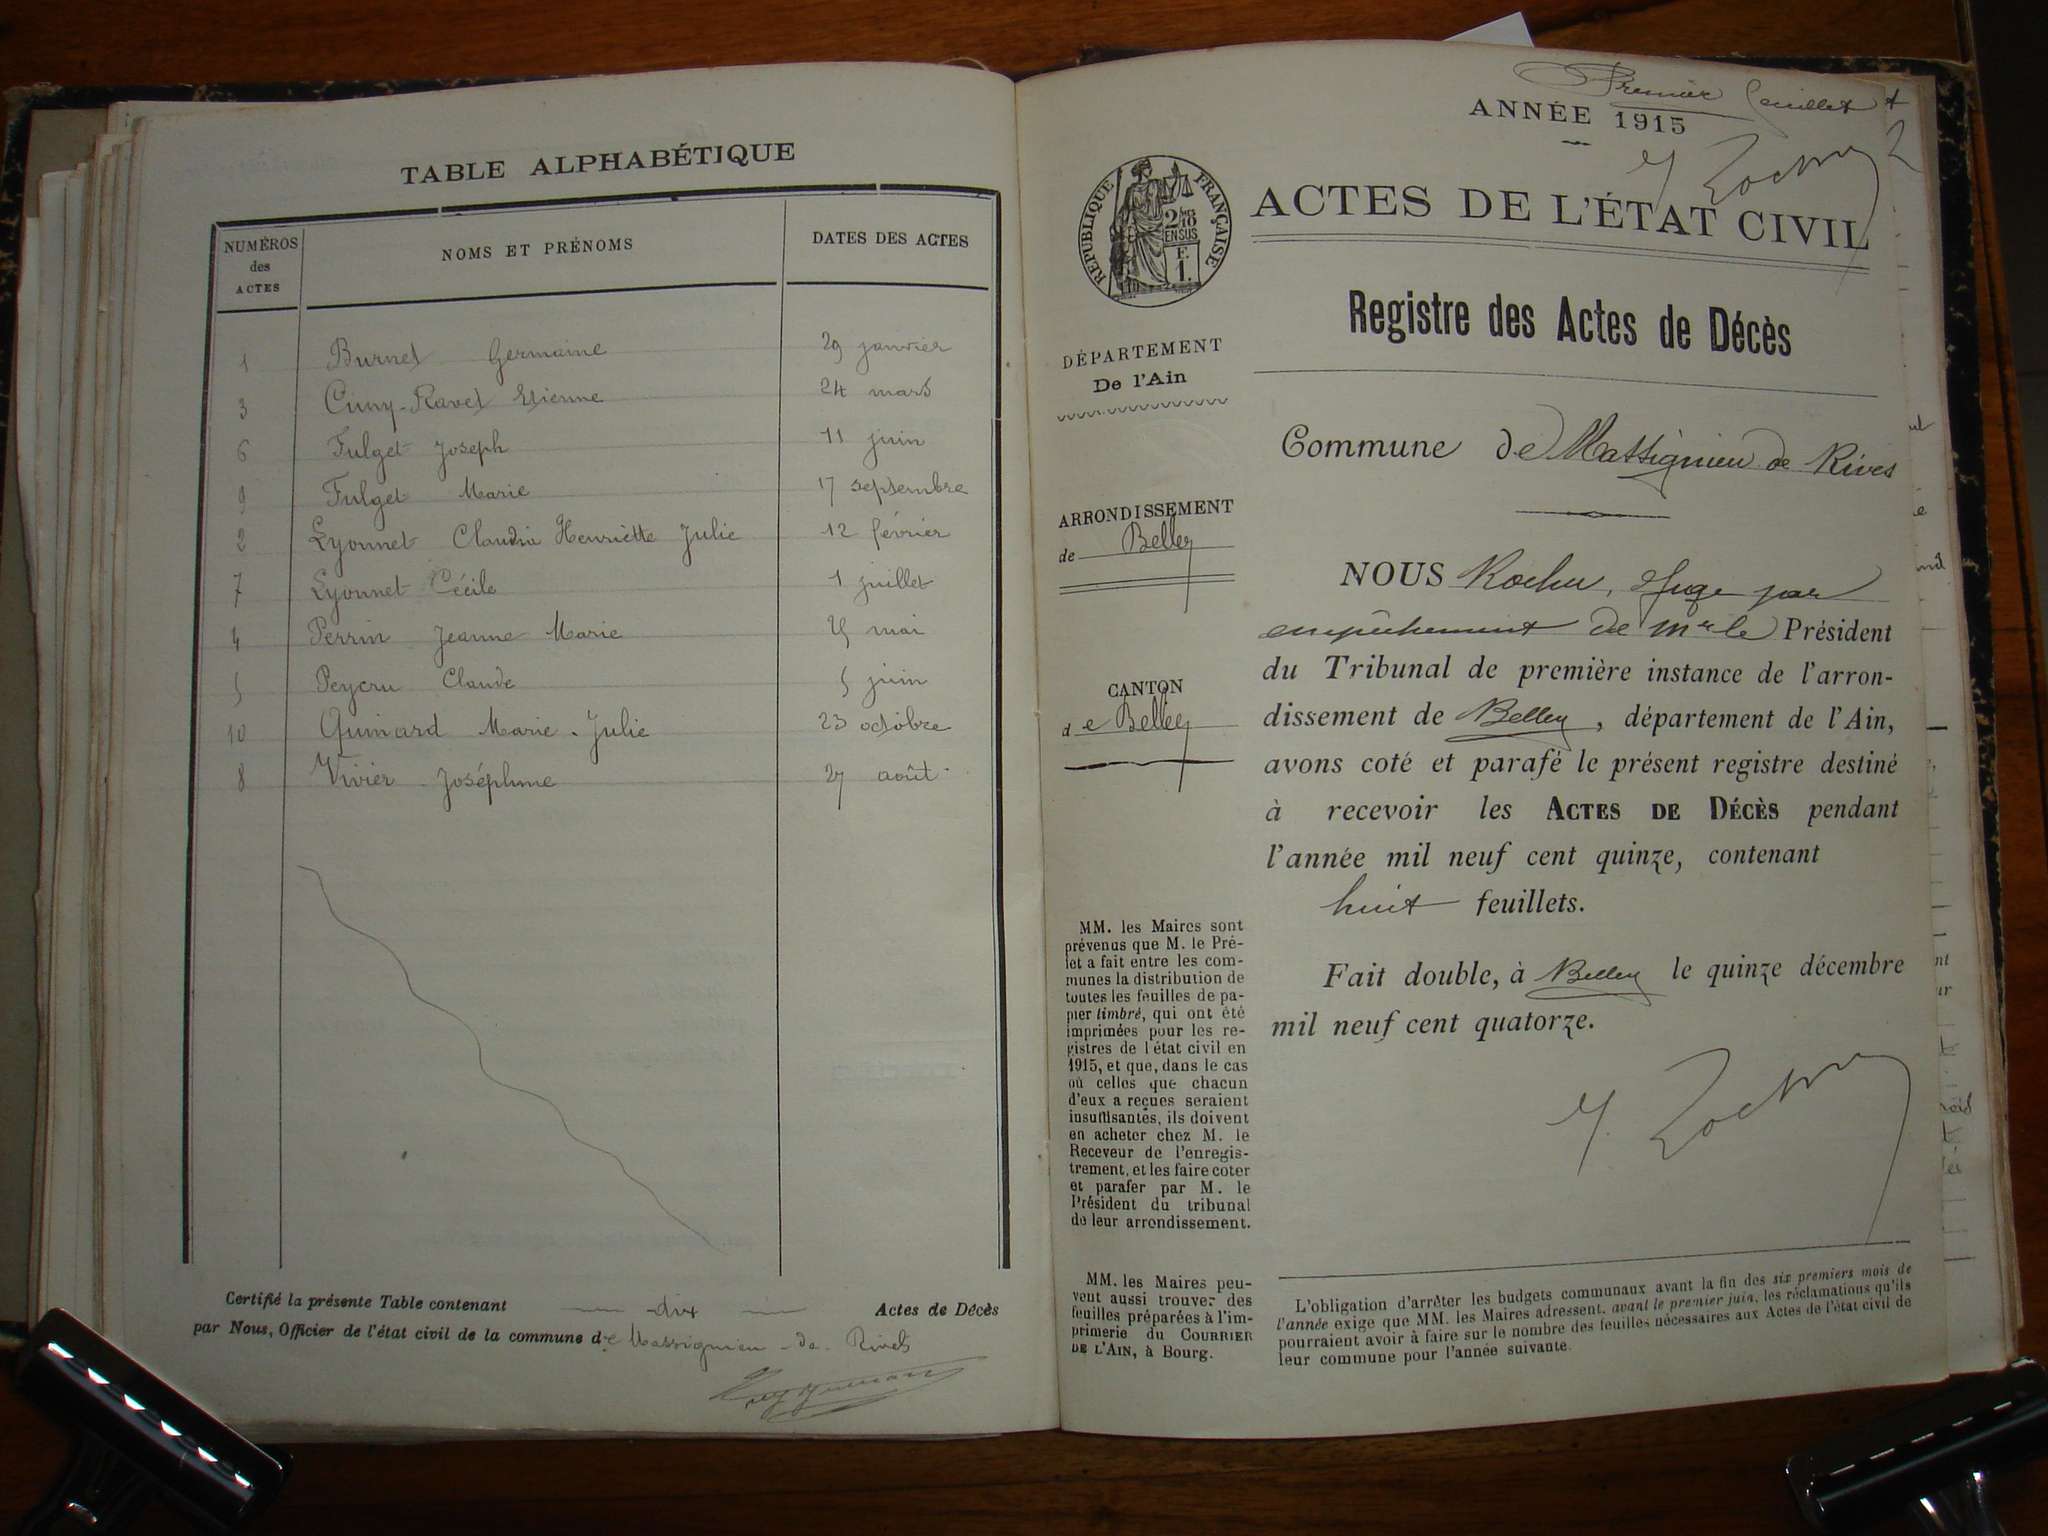 TABLE ALPHABÉTIQUE
NUMÉROS des ACTES
NOMS ET PRÉNOMS
DATES DES ACTES
1 Burnet Germaine 29 janvier
3 Cuny-Ravet Etienne 24 mars
6 Fulget Joseph 11 juin
9 Fulget Marie 17 septembre
2 Lyonnet Claudia Henriette Julie 12 février
7 Lyonnet Cécile 1 juillet
4 Perrin Jeanne Marie 25 mai
5 Peycru Claude 5 juin
10 Quinard Marie-Julie 23 octobre
8 Vivier Joséphine 27 août
Certifié la présente Table contenant dix Actes de Décès
par Nous, Officier de l'état civil de la commune de Massignieu-de-Rives
Premier feuillet
ANNÉE 1915
ACTES DE L'ÉTAT CIVIL
RÉPUBLIQUE FRANÇAISE
2/10
EN SUS
F.
1.
Registre des Actes de Décès
DÉPARTEMENT
De l'Ain
Commune de Massignieu de Rives
ARRONDISSEMENT
de Belley
CANTON
de Belley
NOUS Rocher, Juge par
empêchement de Mr le Président
du Tribunal de première instance de l'arron-
dissement de Belley, département de l'Ain,
avons coté et parafé le présent registre destiné
à recevoir les ACTES DE DÉCÈS pendant
l'année mil neuf cent quinze, contenant
huit feuillets.
Fait double, à Belley le quinze décembre
mil neuf cent quatorze.
MM. les Maires sont
prévenus que M. le Pré-
fet a fait entre les com-
munes la distribution de
toutes les feuilles de pa-
pier timbré, qui ont été
imprimées pour les re-
gistres de l'état civil en
1915, et que, dans le cas
où celles que chacun
d'eux a reçues seraient
insuffisantes, ils doivent
en acheter chez M. le
Receveur de l'enregis-
trement, et les faire coter
et parafer par M. le
Président du tribunal
de leur arrondissement.
MM. les Maires peu-
vent aussi trouver des
feuilles préparées à l'im-
primerie du COURRIER
DE L'AIN, à Bourg.
L'obligation d'arrêter les budgets communaux avant la fin des six premiers mois de
l'année exige que MM. les Maires adressent, avant le premier juin, les réclamations qu'ils
pourraient avoir à faire sur le nombre des feuilles nécessaires aux Actes de l'état civil de
leur commune pour l'année suivante.